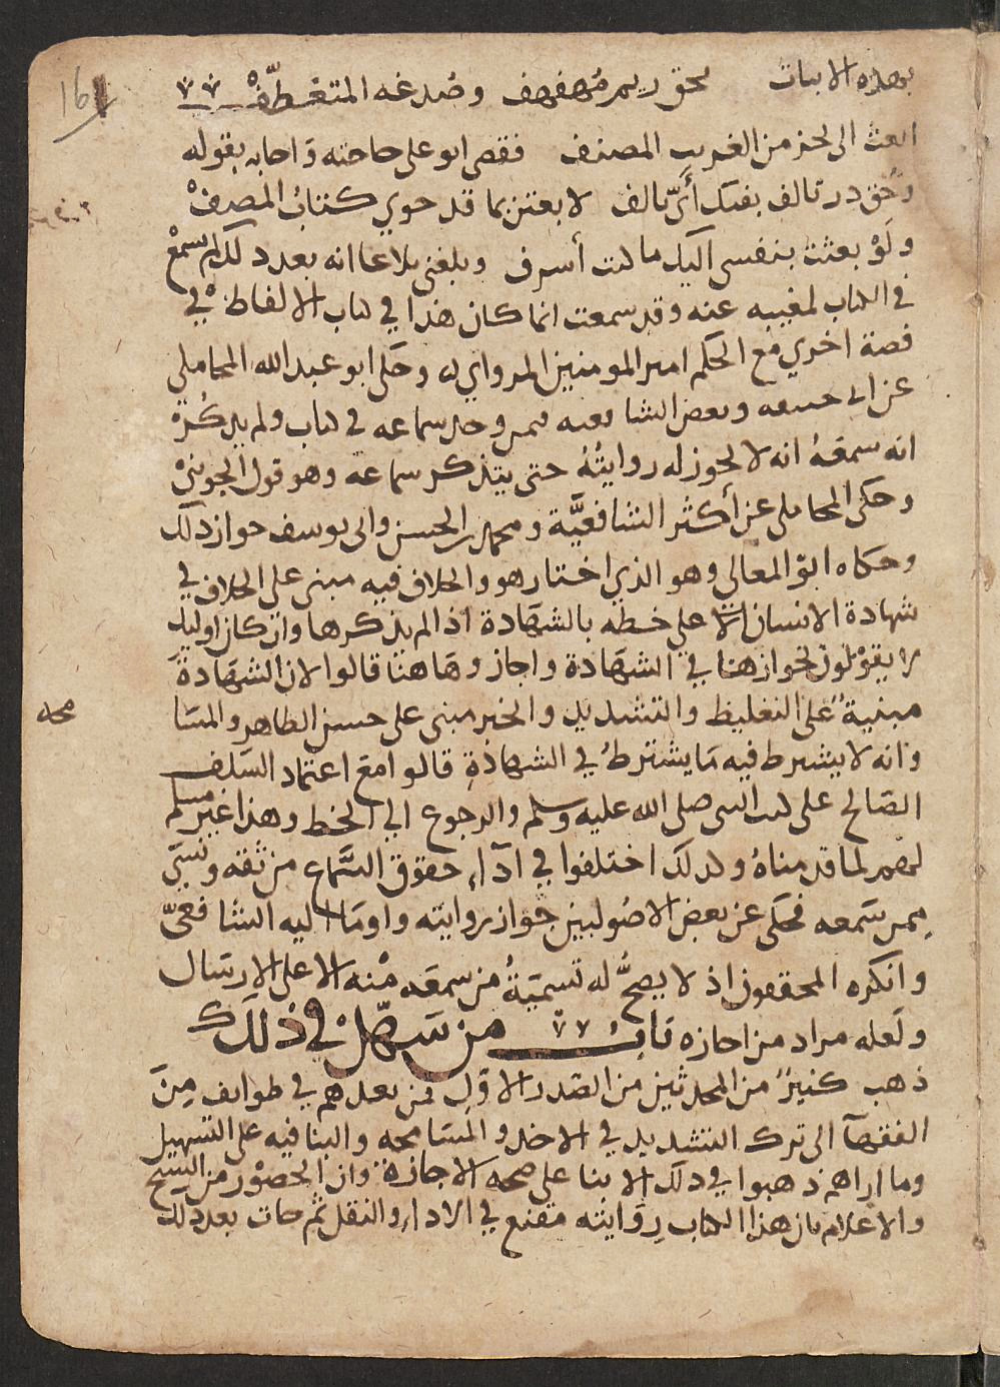 بهذه الابيات بحق ريم مهفهف وصدغه المتعطف
ابعث الى بجزء من الغريب المصنف فقضى ابو على حاجته وَاجابه بقوله
وحق در تالف بفيك أيّ تالف لابعثن بما قد حوي كتاب المصنف
ولَوْ بعثت بنفسي اليك ما كنت أسرف وبلغني بلاغا انه بعد ذلك لم يسمع
في الكتاب لمغيبه عنه وقد سمعت انما كان هذا في كتاب الالفاظ في
قصة اخري مع الحكم امير المومنين المرواني وحكى ابو عبد الله المحاملي
عن ابي حنيفه وبعض الشافعيه فيمن وجد سماعه في كتاب ولم يذكُرْ
انه سمعَهُ انه لا يجوز له روايتُهُ حتى يتذكر سماعه وهو قول الجويني
وحكى المحاملي عن أكثر الشافعيَّة ومحمد بن الحسن وابى يوسف جواز ذلك
وحكاه ابو المعالي وهو الذي اختار هو والخلاف فيه مبنى على الخلاف في
شهادة الانسان على خطه بالشهَادة اذا لم يذكرها وان كان اوليك
لا يقوْلون بجواز هنا في الشهَادة واجازوهَا هنا قالوا لان الشهَادةَ
مبنية على التغليظ والتشديد والخبر مبنى على حسن الظاهر والمسَا
محه
وانه لا يشترط فيه مَا يشترطُ في الشهادة قالوا مع اعتماد السَلف
الصَالح على كتب النبى صلى الله عليه وسلم والرجوع الي الخط وهذا غير مسلم
لهم لما قدمناهُ ولذلك اختلفوا في آداء حقوق السَّماع من ثقه ونسيَ
ممن سَمعه فحكى عن بعض الاصُوليين جَواز روايته واومَا اليه الشافعىّ
وانكره المحققون اذ لا يصحُّ له تسميَةُ من سمعَه منْه الا على الارسَال
ولَعله مراد من اجازه بَابُ من سَهّل في ذلك
ذهب كثيرٌ من المحدثين من الصَدر الاوَل فمن بعدهم في طوايف مِنَ
الفقهآ الى ترك التشديد في الاخذ والمسَامحه والبنا فيه على التسْهيل
وما اراهم ذهبوا في ذلك الا بنا على صحه الاجازة وان الحضوْر من الشيخ
والاعلام بان هذا الكتاب رِوَايته مقنع في الاداءِ والنقل ثم جات بعد ذلك